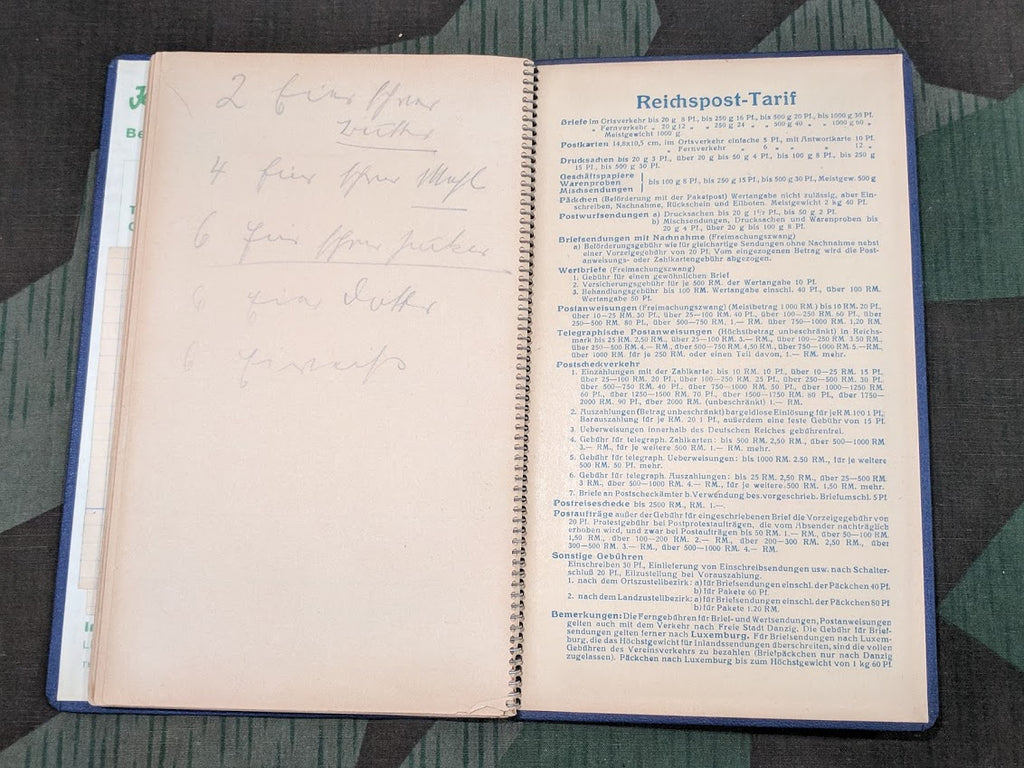 2 Eier schwer
Butter
4 Eier schwer Mehl
6 Eier schwer Zucker
6 Eier Dotter
6 Eiweiß
Be
Reichspost-Tarif
Briefe im Ortsverkehr bis 20 g 8 Pf., bis 250 g 16 Pf., bis 500 g 20 Pf., bis 1000 g 30 Pf.
„ Fernverkehr „ 20 g 12 „ „ 250 g 24 „ „ 500 g 40 „ „ 1000 g 60 „
Meistgewicht 1000 g.
Postkarten 14,8x10,5 cm, im Ortsverkehr einfache 5 Pf., mit Antwortkarte 10 Pf.
„ Fernverkehr „ 6 „ „ „ 12 „
Drucksachen bis 20 g 3 Pf., über 20 g bis 50 g 4 Pf., bis 100 g 8 Pf., bis 250 g
15 Pf., bis 500 g 30 Pf.
Geschäftspapiere
Warenproben
Mischsendungen
bis 100 g 8 Pf., bis 250 g 15 Pf., bis 500 g 30 Pf., Meistgew. 500 g
Päckchen (Beförderung mit der Paketpost) Wertangabe nicht zulässig, aber Ein-
schreiben, Nachnahme, Rückschein und Eilboten. Meistgewicht 2 kg 40 Pf.
Postwurfsendungen a) Drucksachen bis 20 g 1½ Pf., bis 50 g 2 Pf.
b) Mischsendungen, Drucksachen und Warenproben bis
20 g 4 Pf., über 20 g bis 100 g 8 Pf.
Briefsendungen mit Nachnahme (Freimachungszwang)
a) Beförderungsgebühr wie für gleichartige Sendungen ohne Nachnahme nebst
einer Vorzeigegebühr von 20 Pf. Vom eingezogenen Betrag wird die Post-
anweisungs- oder Zahlkartengebühr abgezogen.
Wertbriefe (Freimachungszwang)
1. Gebühr für einen gewöhnlichen Brief
2. Versicherungsgebühr für je 500 RM. der Wertangabe 10 Pf.
3. Behandlungsgebühr bis 100 RM. Wertangabe einschl. 40 Pf., über 100 RM.
Wertangabe 50 Pf.
Postanweisungen (Freimachungszwang) (Meistbetrag 1000 RM.) bis 10 RM. 20 Pf.,
über 10—25 RM. 30 Pf., über 25—100 RM. 40 Pf., über 100—250 RM. 60 Pf., über
250—500 RM. 80 Pf., über 500—750 RM. 1.— RM. über 750—1000 RM. 1,20 RM.
Telegraphische Postanweisungen (Höchstbetrag unbeschränkt) in Reichs-
mark bis 25 RM. 2,50 RM., über 25—100 RM. 3.— RM., über 100—250 RM. 3.50 RM.,
über 250—500 RM. 4.— RM., über 500—750 RM. 4,50 RM., über 750—1000 RM. 5.—RM.,
über 1000 RM. für je 250 RM. oder einen Teil davon, 1.— RM. mehr.
Postscheckverkehr
1. Einzahlungen mit der Zahlkarte: bis 10 RM. 10 Pf., über 10—25 RM. 15 Pf.,
über 25—100 RM. 20 Pf., über 100—250 RM. 25 Pf., über 250—500 RM. 30 Pf.,
über 500—750 RM. 40 Pf., über 750—1000 RM. 50 Pf., über 1000—1250 RM.
60 Pf., über 1250—1500 RM. 70 Pf., über 1500—1750 RM. 80 Pf., über 1750—
2000 RM. 90 Pf., über 2000 RM. (unbeschränkt) 1.— RM.
2. Auszahlungen (Betrag unbeschränkt) bargeldlose Einlösung für je RM. 100 1 Pf.,
Barauszahlung für je RM. 20 1 Pf., außerdem eine feste Gebühr von 15 Pf.
3. Ueberweisungen innerhalb des Deutschen Reiches gebührenfrei.
4. Gebühr für telegraph. Zahlkarten: bis 500 RM. 2,50 RM., über 500—1000 RM
3.— RM., für je weitere 500 RM. 1.— RM. mehr.
5. Gebühr für telegraph. Ueberweisungen: bis 1000 RM. 2.50 RM., für je weitere
500 RM. 50 Pf. mehr.
6. Gebühr für telegraph. Auszahlungen: bis 25 RM. 2,50 RM., über 25—500 RM
3 RM., über 500—1000 RM. 4.— RM., für je weitere 500 RM. 1,50 RM. mehr.
7. Briefe an Postscheckämter b. Verwendung bes. vorgeschrieb. Briefumschl. 5 Pf
Postreiseschecke bis 2500 RM., RM. 1.—.
Postaufträge außer der Gebühr für eingeschriebenen Brief die Vorzeigegebühr von
20 Pf. Protestgebühr bei Postprotestaufträgen, die vom Absender nachträglich
erhoben wird, und zwar bei Postaufträgen bis 50 RM. 1.— RM., über 50—100 RM.
1,50 RM., über 100—200 RM. 2.— RM., über 200—300 RM. 2,50 RM., über
300—500 RM. 3.— RM., über 500—1000 RM. 4.— RM.
Sonstige Gebühren
Einschreiben 30 Pf., Einlieferung von Einschreibsendungen usw. nach Schalter-
schluß 20 Pf., Eilzustellung bei Vorauszahlung.
1. nach dem Ortszustellbezirk: a) für Briefsendungen einschl. der Päckchen 40 Pf.
b) für Pakete 60 Pf.
2. nach dem Landzustellbezirk: a) für Briefsendungen einschl. der Päckchen 80 Pf
b) für Pakete 1.20 RM.
Bemerkungen: Die Ferngebühren für Brief- und Wertsendungen, Postanweisungen
gelten auch mit dem Verkehr nach Freie Stadt Danzig. Die Gebühr für Brief-
sendungen gelten ferner nach Luxemburg. Für Briefsendungen nach Luxem-
burg, die das Höchstgewicht für Inlandssendungen überschreiten, sind die vollen
Gebühren des Vereinsverkehrs zu bezahlen (Briefpäckchen nur nach Danzig
zugelassen). Päckchen nach Luxemburg bis zum Höchstgewicht von 1 kg 60 Pf.